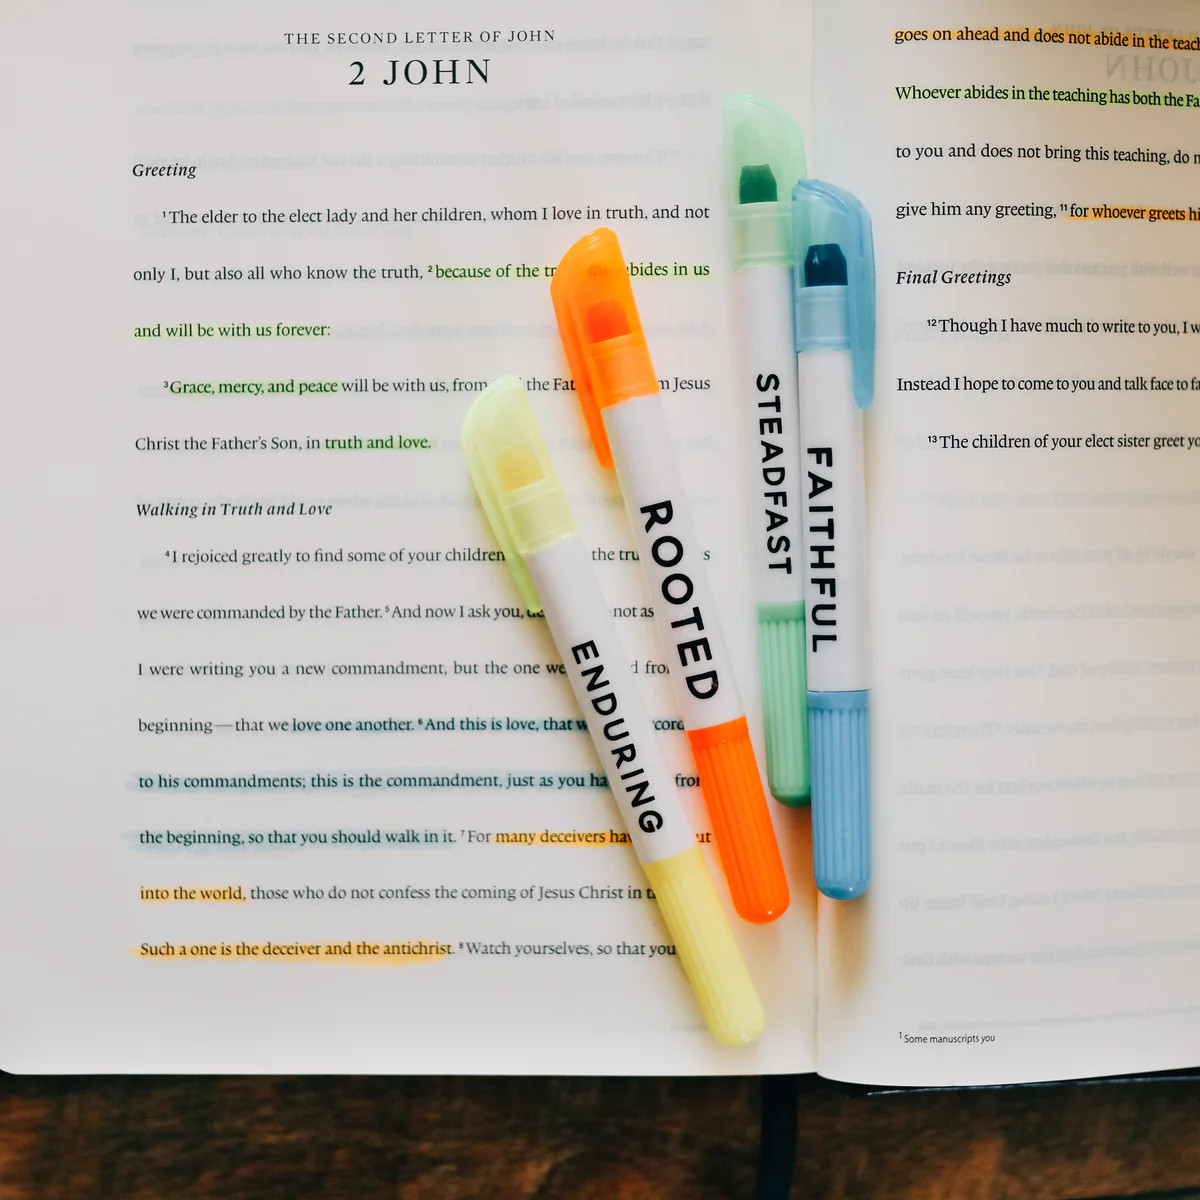 THE SECOND LETTER OF JOHN
2 JOHN
Greeting
¹The elder to the elect lady and her children, whom I love in truth, and not
only I, but also all who know the truth, ²because of the abides in us
and will be with us forever:
³Grace, mercy, and peace will be with us, from the Jesus
Christ the Father's Son, in truth and love.
Walking in Truth and Love
⁴I rejoiced greatly to find some of your children the
we were commanded by the Father. ⁵And now I ask you, not as
I were writing you a new commandment, but the one we
beginning—that we love one another. ⁶And this is love, that
to his commandments; this is the commandment, just as you
the beginning, so that you should walk in it. ⁷For many deceivers
into the world, those who do not confess the coming of Jesus Christ in
Such a one is the deceiver and the antichrist. ⁸Watch yourselves, so that you
STEADFAST
FAITHFUL
ROOTED
ENDURING
goes on ahead and does not abide in the
Whoever abides in the teaching has both the
to you and does not bring this teaching, do
give him any greeting, ¹¹for whoever greets
Final Greetings
¹²Though I have much to write to you, I
Instead I hope to come to you and talk face to
¹³The children of your elect sister greet
¹Some manuscripts you